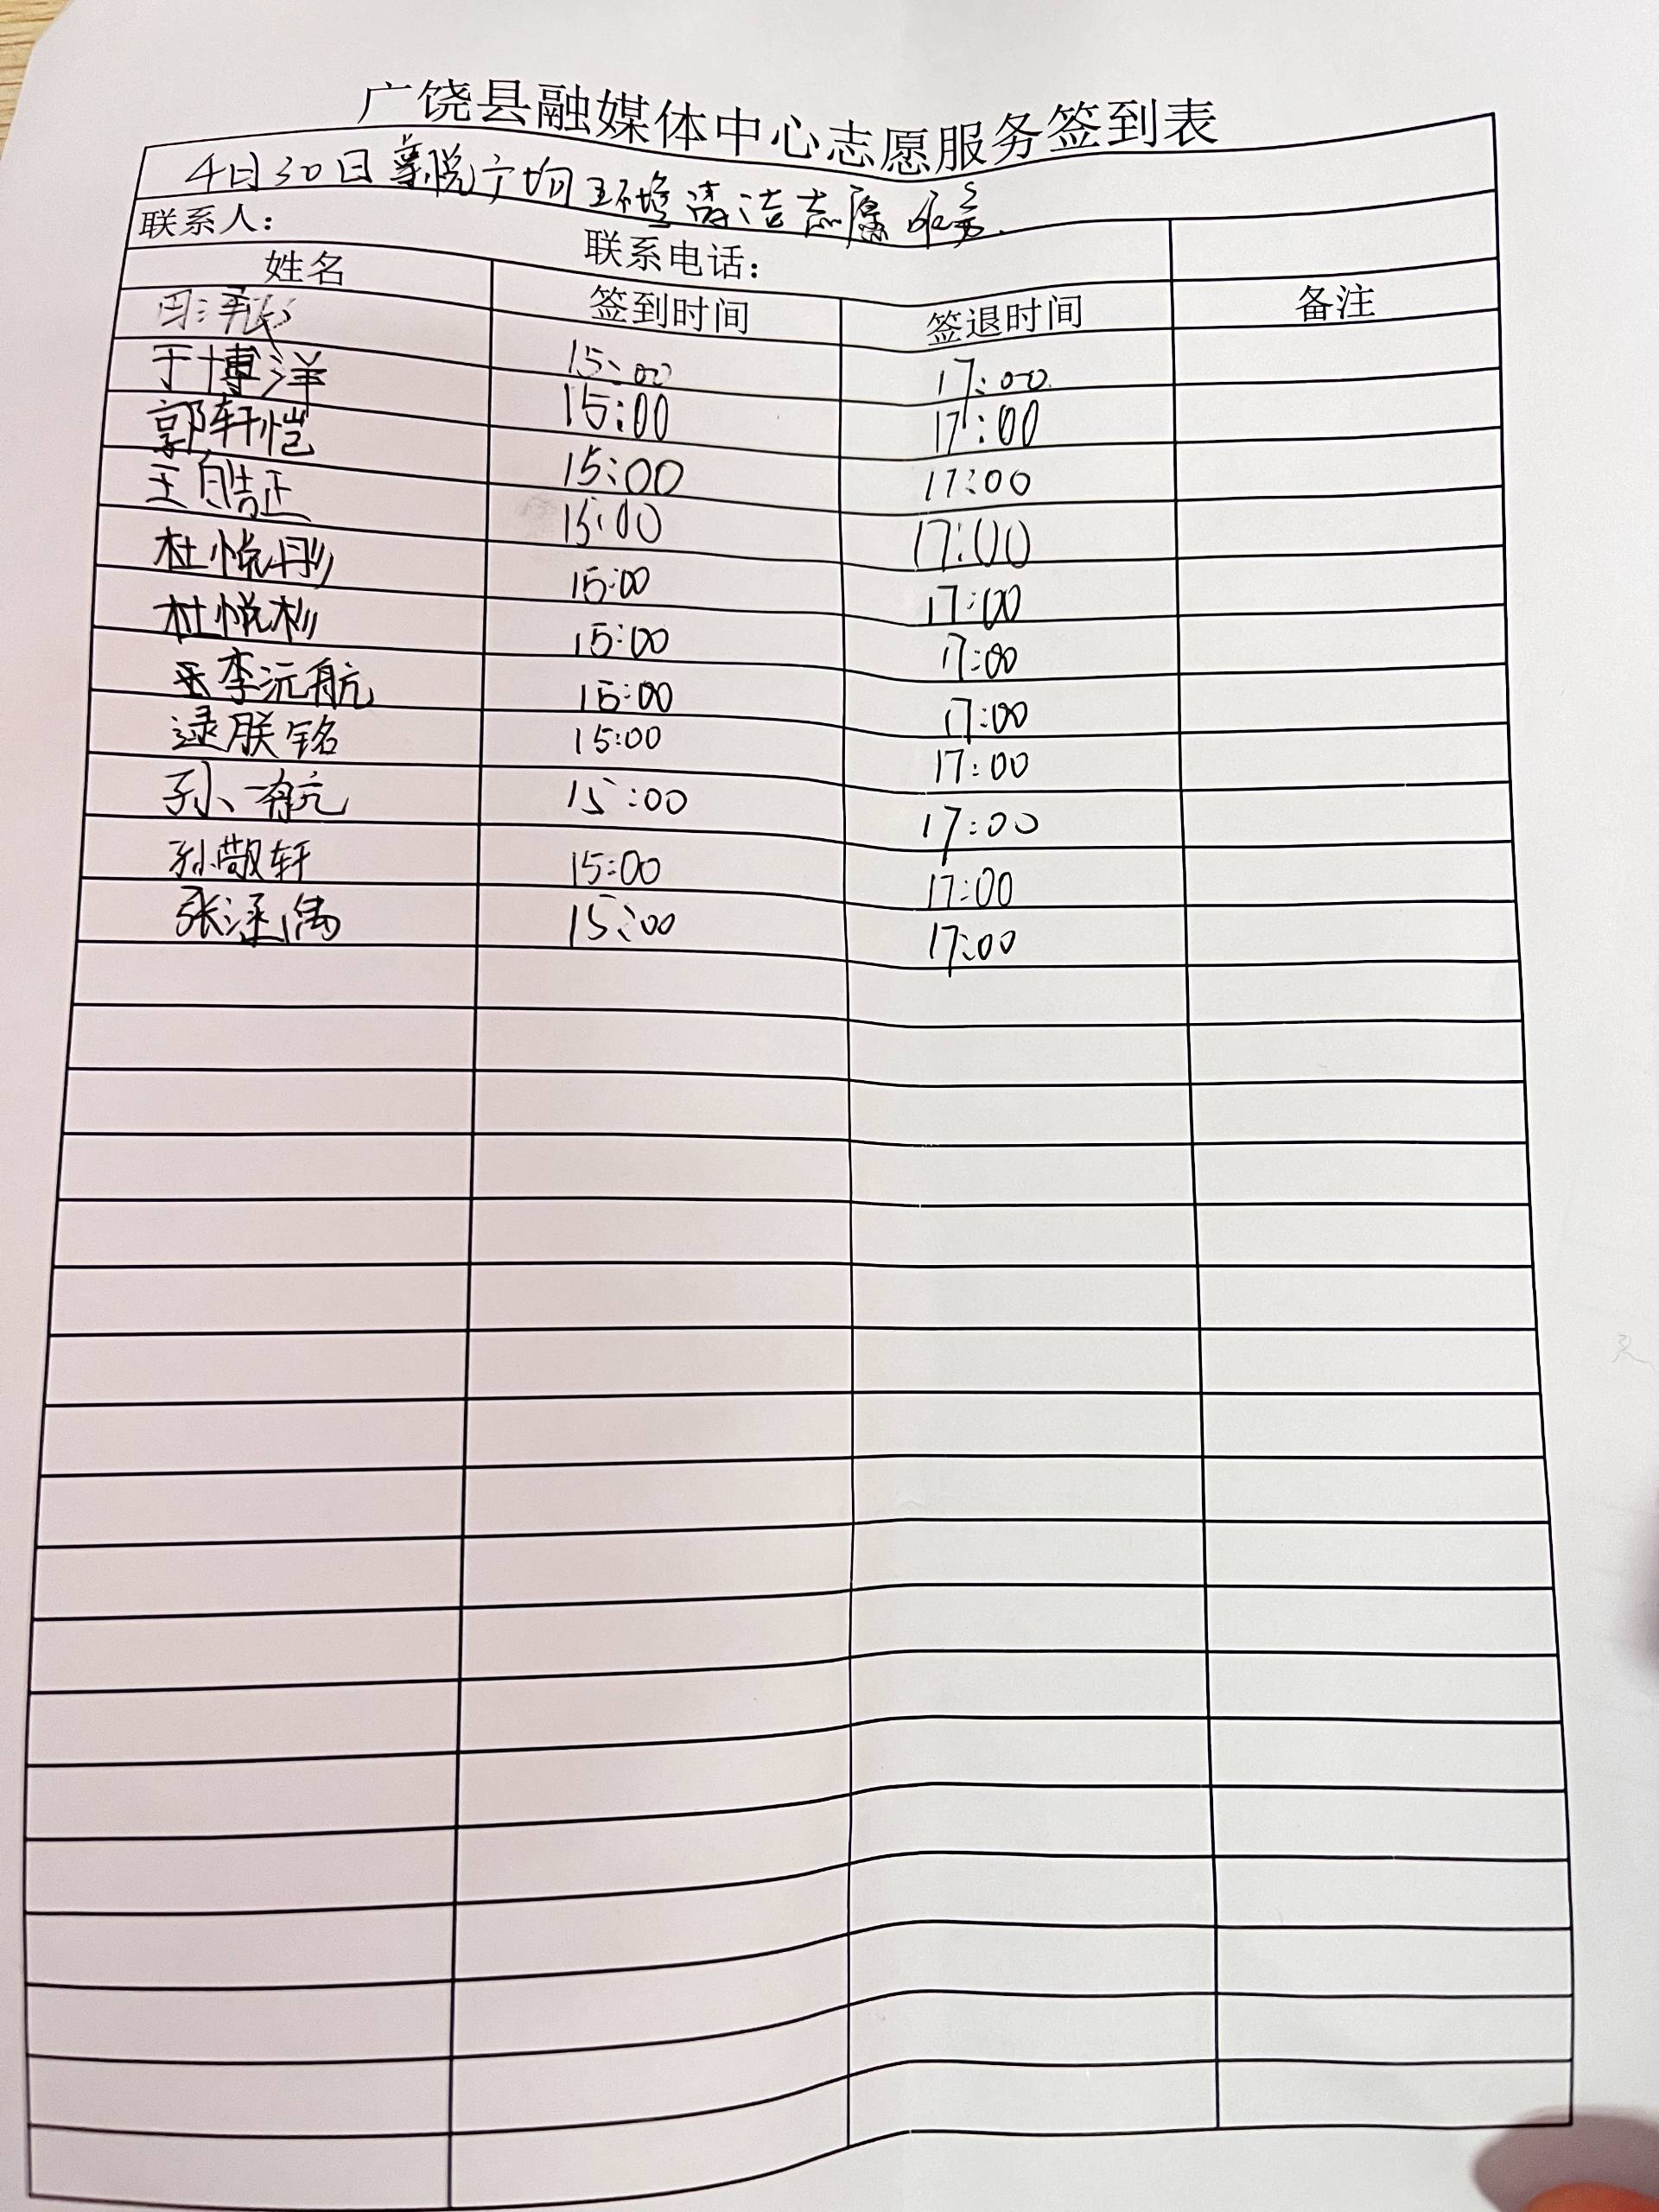 广饶县融媒体中心志愿服务签到表
4月30日 悦广场环境清洁志愿服务.
联系人： 联系电话：
姓名 签到时间 签退时间 备注
15:00 17:00
于博洋 15:00 17:00
郭轩恺 15:00 17:00
王皓正 15:00 17:00
杜悦彤 15:00 17:00
杜悦杉 15:00 17:00
李沅航 15:00 17:00
逯朕铭 15:00 17:00
孙一航 15:00 17:00
孙敬轩 15:00 17:00
张 15:00 17:00